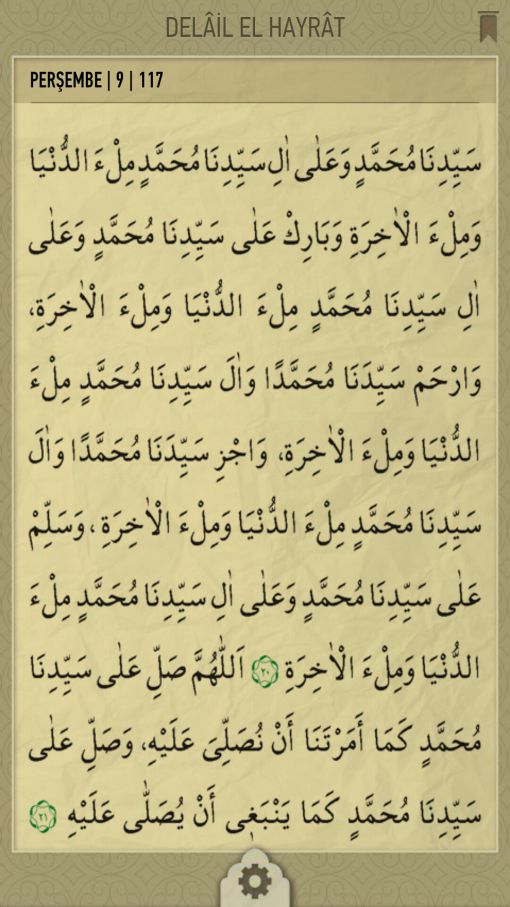 DELÂİL EL HAYRÂT
PERŞEMBE | 9 | 117
سَيِّدِنَا مُحَمَّدٍ وَعَلٰى اٰلِ سَيِّدِنَا مُحَمَّدٍ مِلْءَ الدُّنْيَا
وَمِلْءَ الْاٰخِرَةِ وَبَارِكْ عَلٰى سَيِّدِنَا مُحَمَّدٍ وَعَلٰى
اٰلِ سَيِّدِنَا مُحَمَّدٍ مِلْءَ الدُّنْيَا وَمِلْءَ الْاٰخِرَةِ،
وَارْحَمْ سَيِّدَنَا مُحَمَّدًا وَاٰلَ سَيِّدِنَا مُحَمَّدٍ مِلْءَ
الدُّنْيَا وَمِلْءَ الْاٰخِرَةِ، وَاجْزِ سَيِّدَنَا مُحَمَّدًا وَاٰلَ
سَيِّدِنَا مُحَمَّدٍ مِلْءَ الدُّنْيَا وَمِلْءَ الْاٰخِرَةِ، وَسَلِّمْ
عَلٰى سَيِّدِنَا مُحَمَّدٍ وَعَلٰى اٰلِ سَيِّدِنَا مُحَمَّدٍ مِلْءَ
الدُّنْيَا وَمِلْءَ الْاٰخِرَةِ ٢٠ اَللّٰهُمَّ صَلِّ عَلٰى سَيِّدِنَا
مُحَمَّدٍ كَمَا أَمَرْتَنَا أَنْ نُصَلِّيَ عَلَيْهِ، وَصَلِّ عَلٰى
سَيِّدِنَا مُحَمَّدٍ كَمَا يَنْبَغِى أَنْ يُصَلّٰى عَلَيْهِ ٢١